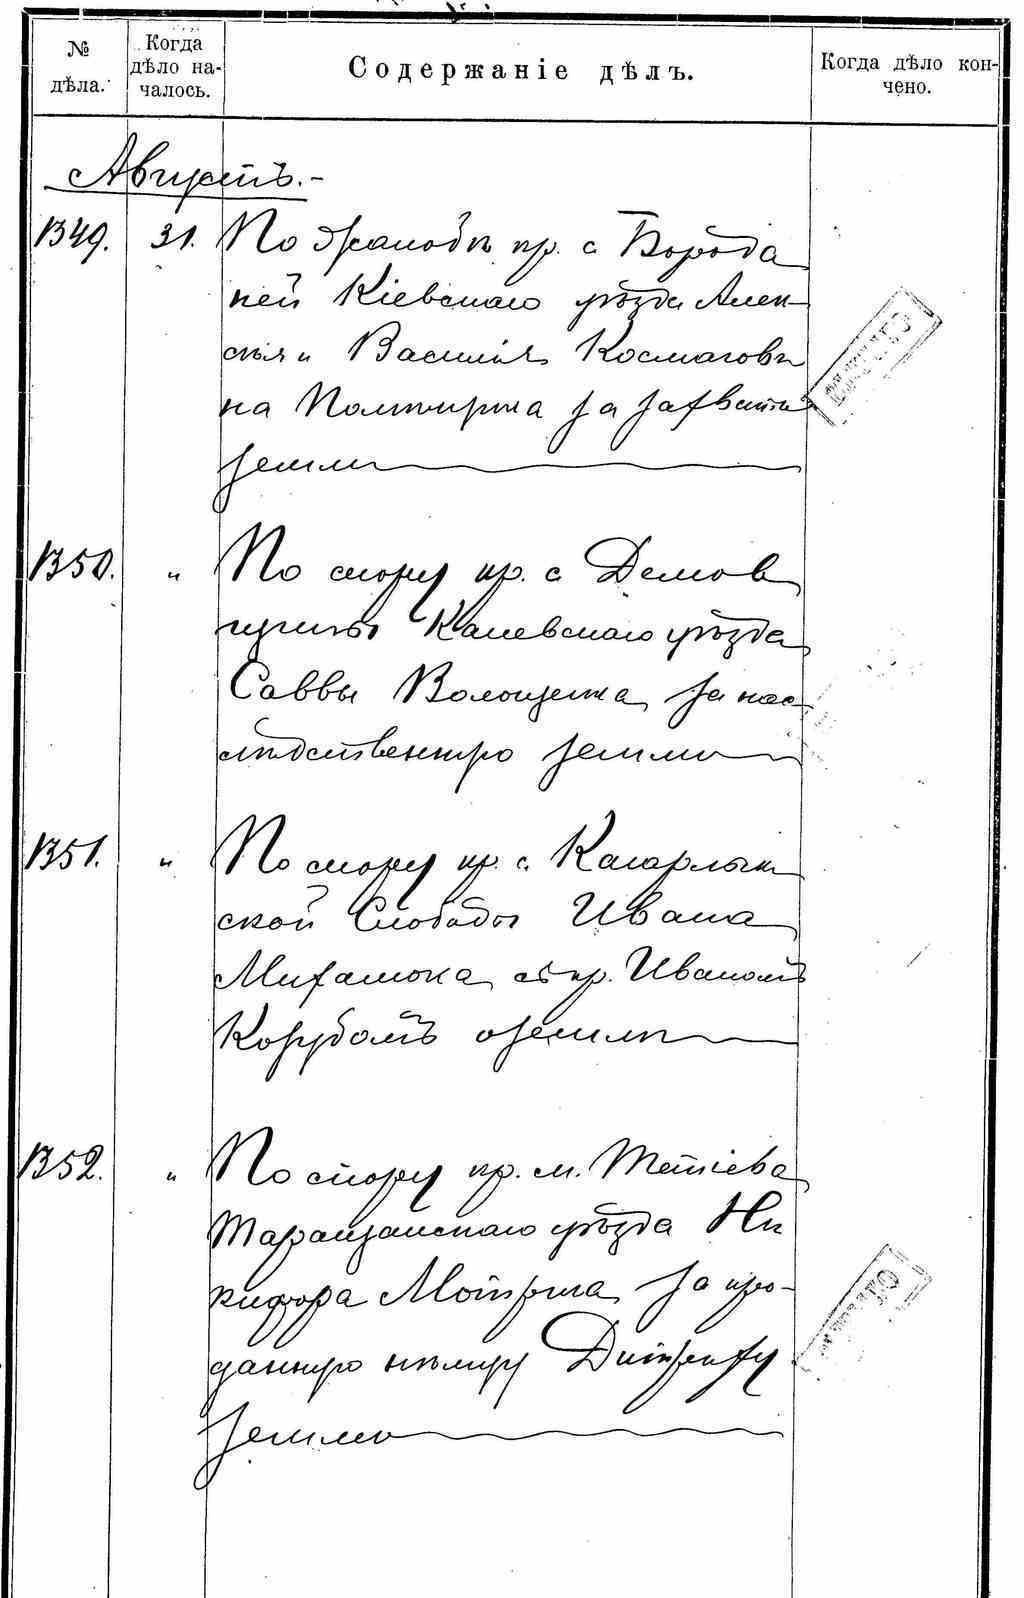 № дѣла.
Когда дѣло на-
чалось.
Содержаніе дѣлъ.
Когда дѣло кон-
чено.
Августъ.-
1349. 31. По жалобѣ кр. с Борода
ней Кіевскаго уѣзда Алек
сѣя и Василія
на за захватъ
земли
1350. " По спору кр. с Демов
щины Каневскаго уѣзда
Саввы Волощенка за нас-
лѣдственную землю
1351. " По спору кр. с. Кагарлык
ской Слободы Ивана
Михалюка съ кр. Иваномъ
о землѣ
1352. " По спору кр. м. Тетіева
Таращанскаго уѣзда Ни
кифора за про-
данную нѣмцу
землю